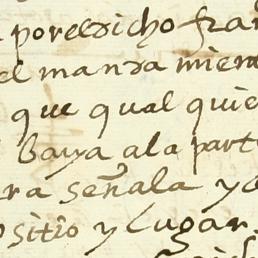 por el dicho fran
el manda mien
que qual quie
baya ala part
ra señala y
sitio y lugar